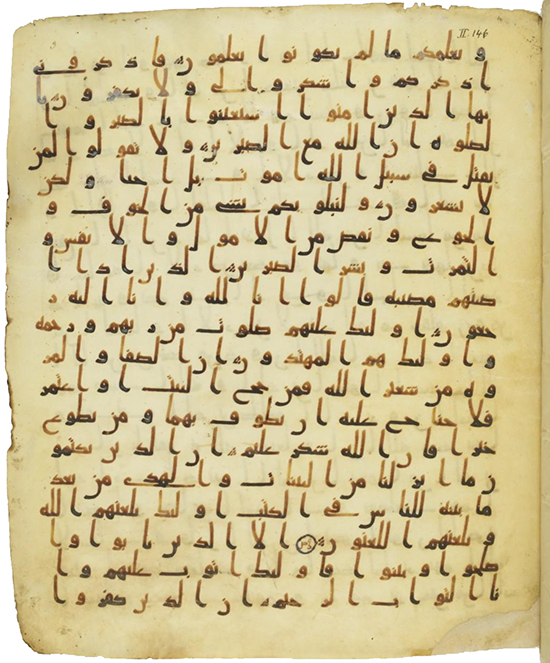 II. 146
و يعلمكم ما لم تكونوا تعلمون فاذكروني
اذكركم واشكروا لي ولا تكفرون يا
يها الذين امنوا استعينوا بالصبر وا
لصلوه ان الله مع الصبرين ولا تقولوا لمن
يقتل في سبيل الله اموت بل احيا ولكن
لا تشعرون ولنبلونكم بشي من الخوف و
الجوع ونقص من الامول والانفس و
الثمرت وبشر الصبرين الذين اذا ا
صبتهم مصيبه قالوا انا لله وانا اليه ر
جعون اوليك عليهم صلوت من ربهم ورحمه
واوليك هم المهتدون ان الصفا والمر
وه من شعير الله فمن حج البيت او اعتمر
فلا جناح عليه ان يطوف بهما ومن تطوع
خيرا فان الله شكر عليم ان الذين يكتمو
ن ما انزلنا من البينت والهدى من بعد
ما بينه للناس في الكتب اوليك يلعنهم الله
ويلعنهم اللعنون الا الذين تابوا وا
صلحوا وبينوا فاوليك اتوب عليهم وا
نا التواب الرحيم ان الذين كفروا